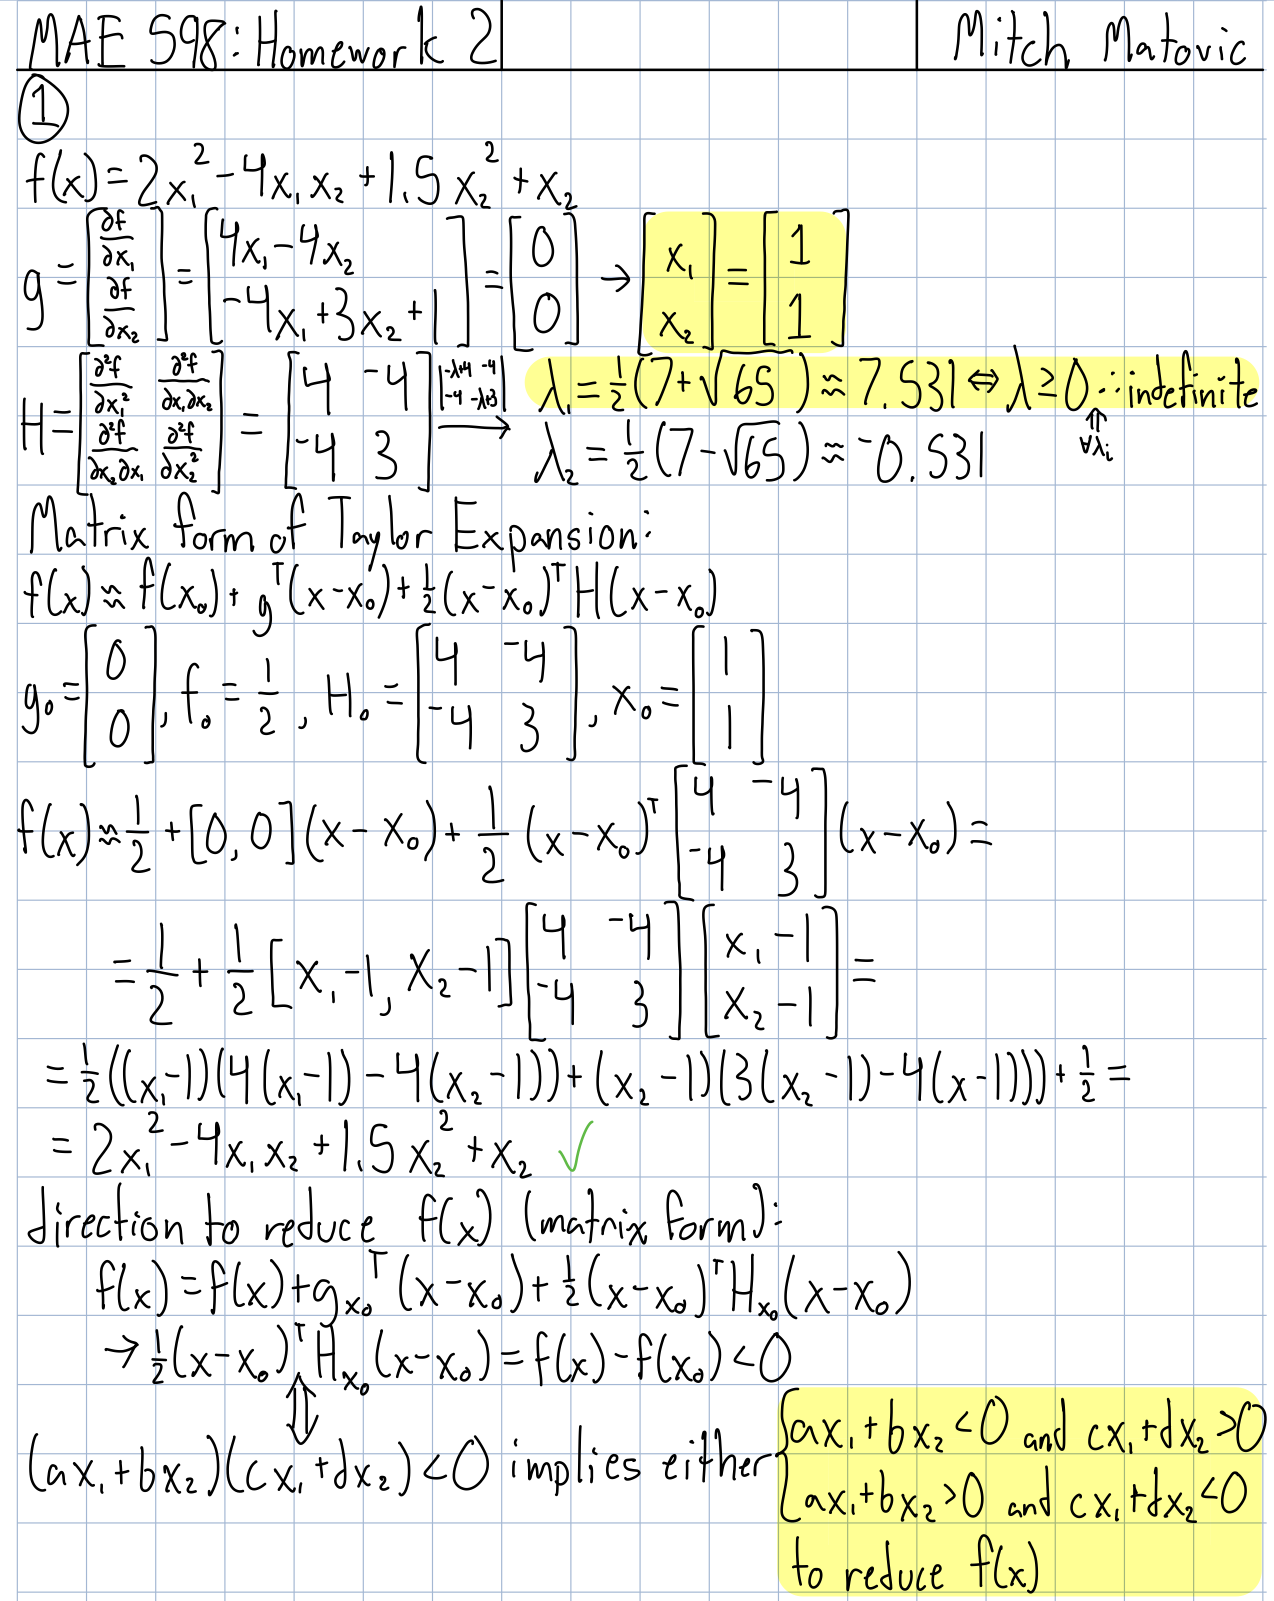 MAE 598: Homework 2 Mitch Matovic
①
f(x) = 2x₁² - 4x₁x₂ + 1.5x₂² + x₂
g = [∂f/∂x₁; ∂f/∂x₂] = [4x₁ - 4x₂; -4x₁ + 3x₂ + 1] = [0; 0] → [x₁; x₂] = [1; 1]
H = [∂²f/∂x₁² ∂²f/∂x₁∂x₂; ∂²f/∂x₂∂x₁ ∂²f/∂x₂²] = [4 -4; -4 3] |-λ+4 -4; -4 -λ+3| → λ₁ = ½(7+√65) ≈ 7.531 ⇔ λ ≥ 0 ∴ indefinite
λ₂ = ½(7-√65) ≈ -0.531 ⇑ ∀λᵢ
Matrix form of Taylor Expansion:
f(x) ≈ f(x₀) + gᵀ(x-x₀) + ½(x-x₀)ᵀH(x-x₀)
g₀ = [0; 0], f₀ = 1/2, H₀ = [4 -4; -4 3], x₀ = [1; 1]
f(x) ≈ 1/2 + [0, 0](x-x₀) + 1/2 (x-x₀)ᵀ [4 -4; -4 3] (x-x₀) =
= 1/2 + 1/2 [x₁-1, x₂-1] [4 -4; -4 3] [x₁-1; x₂-1] =
= ½((x₁-1)(4(x₁-1)-4(x₂-1))+(x₂-1)(3(x₂-1)-4(x-1)))) + ½ =
= 2x₁² - 4x₁x₂ + 1.5x₂² + x₂ ✓
direction to reduce f(x) (matrix form):
f(x) = f(x) + gₓ₀ᵀ(x-x₀) + ½(x-x₀)ᵀHₓ₀(x-x₀)
→ ½(x-x₀)ᵀHₓ₀(x-x₀) = f(x) - f(x₀) < 0
⇕
(ax₁+bx₂)(cx₁+dx₂) < 0 implies either { ax₁+bx₂ < 0 and cx₁+dx₂ > 0
ax₁+bx₂ > 0 and cx₁+dx₂ < 0
to reduce f(x)